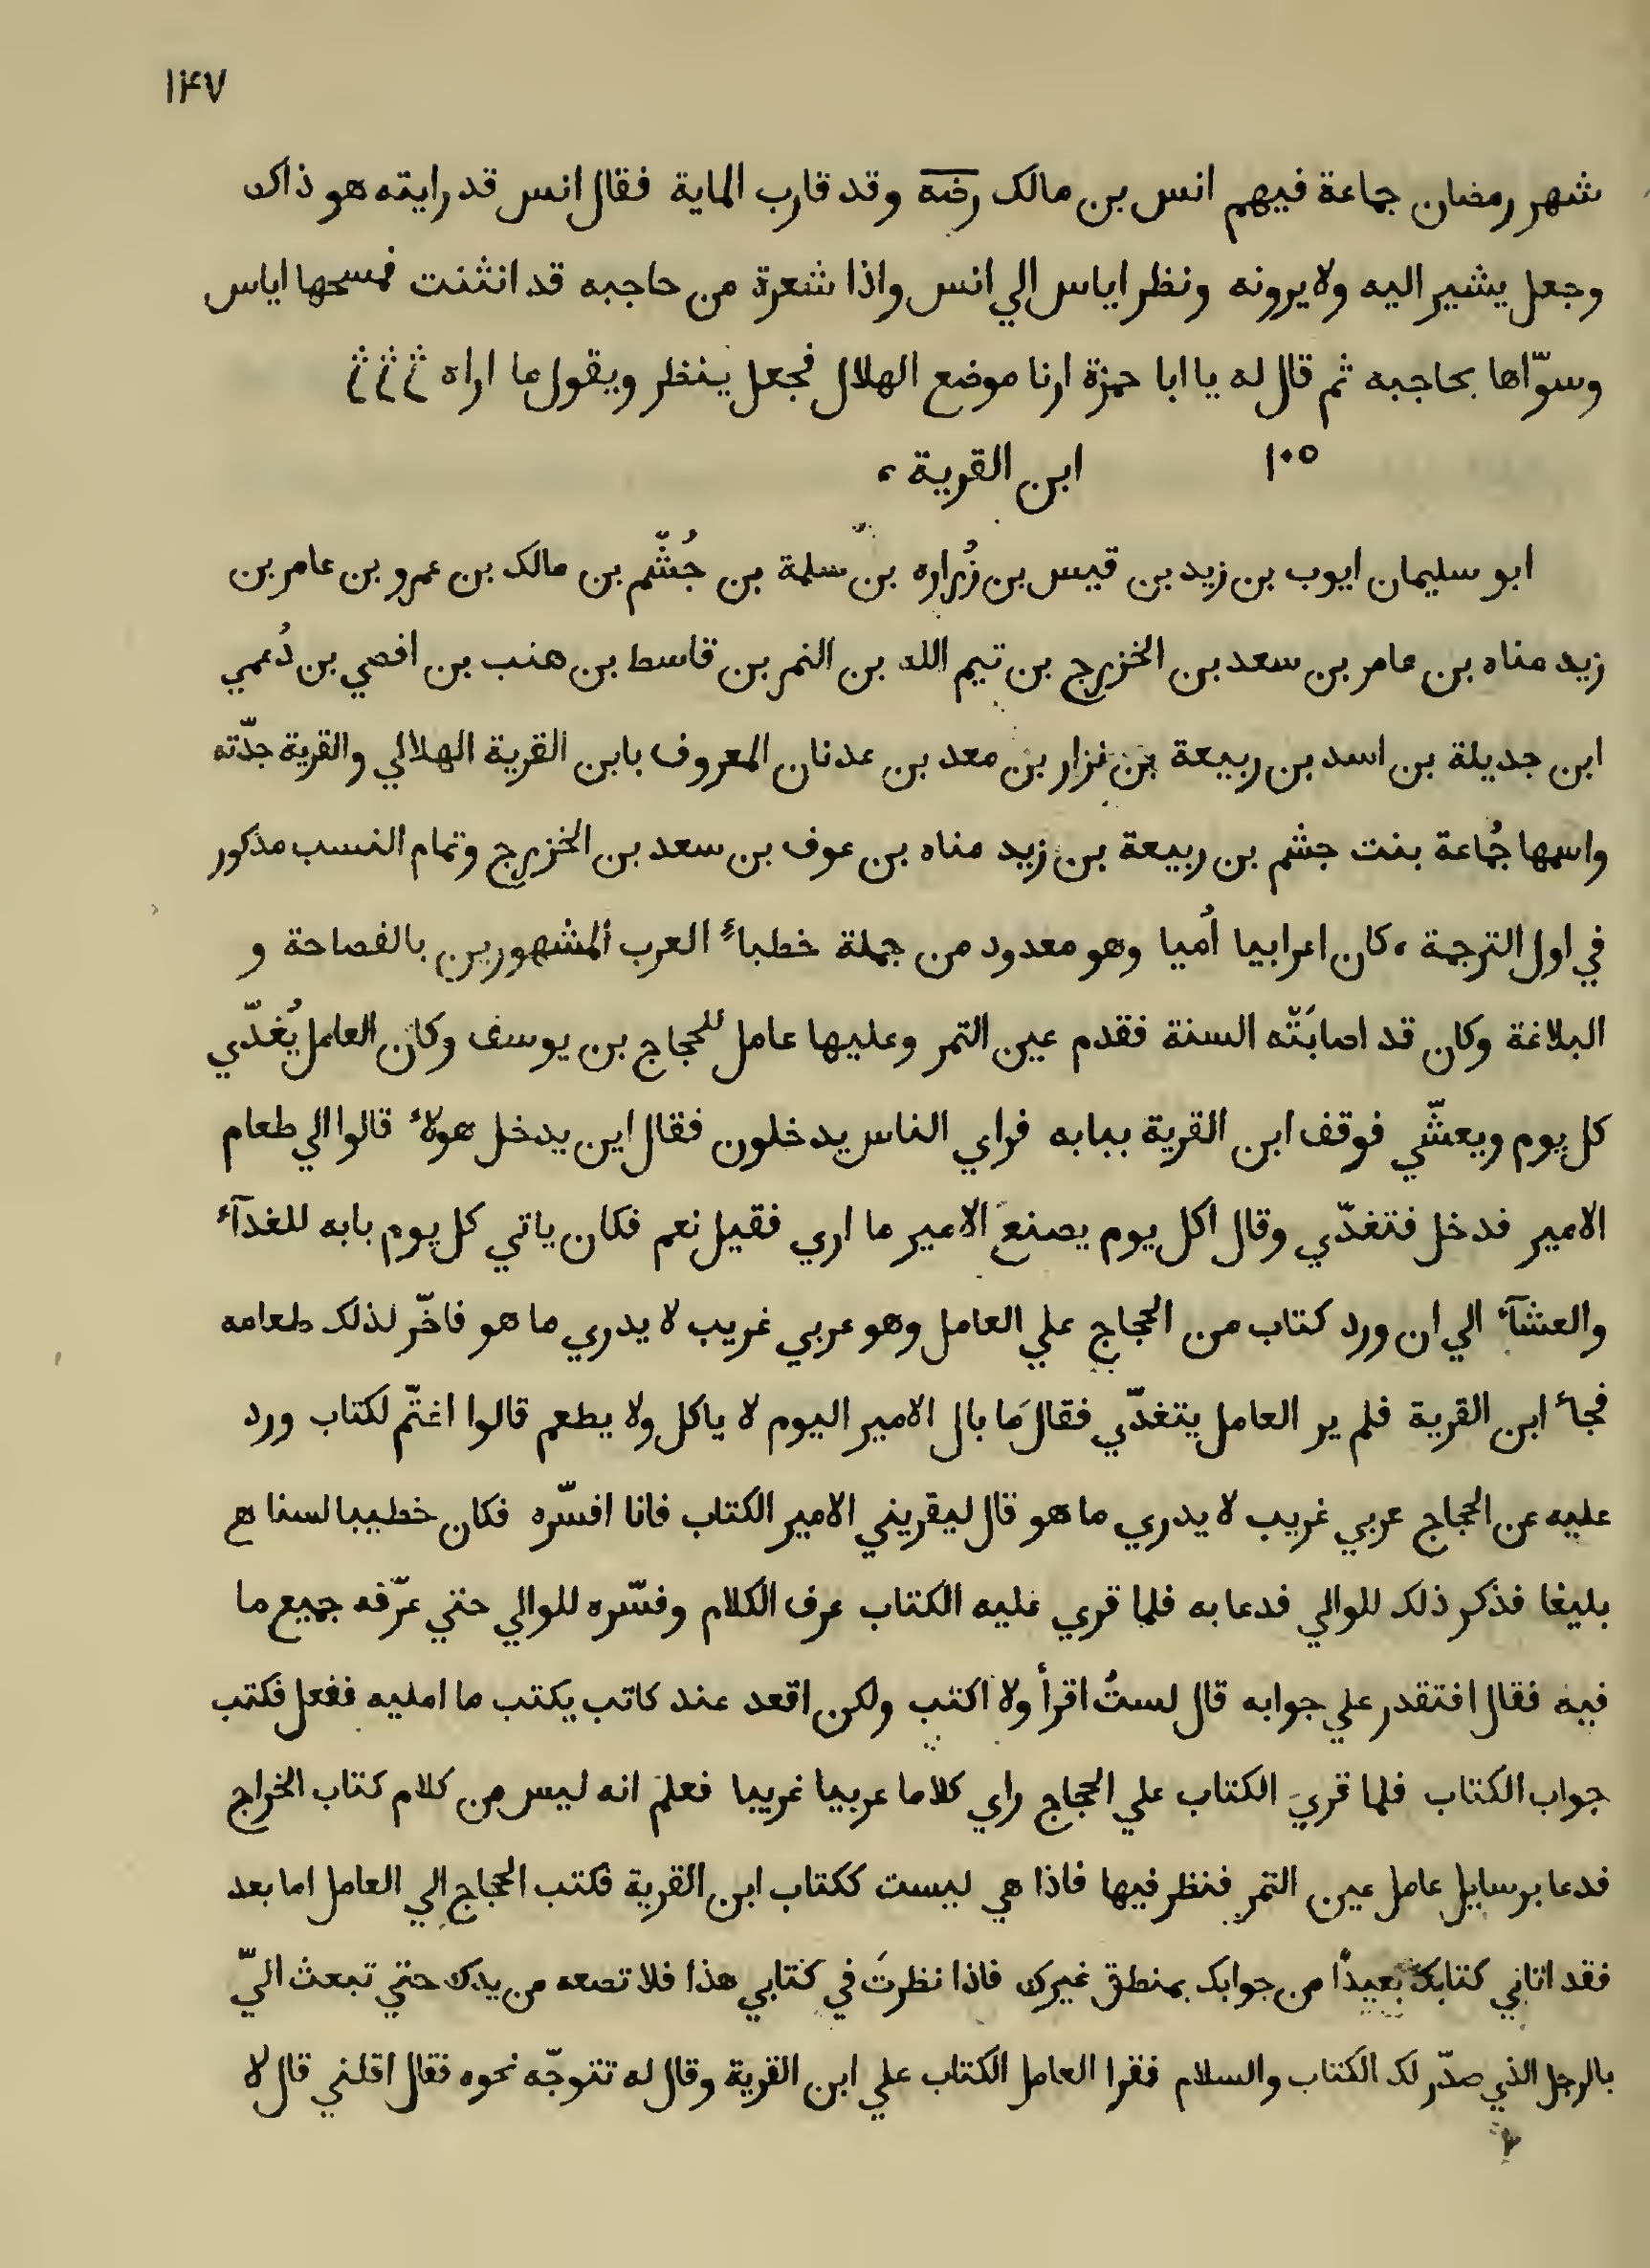 ١٤٧
شهر رمضان جماعة فيهم انس بن مالك رضه وقد قارب الماية فقال انس قد رايته هو ذاك
وجعل يشير اليه ولا يرونه ونظر اياس الي انس واذا شعرة من حاجبه قد انثنت فمسحها اياس
وسوّاها بحاجبه ثم قال له يا ابا حمزة ارنا موضع الهلال فجعل ينظر ويقول ما اراه
١٠٥ ابن القرية ،
ابو سليمان ايوب بن زيد بن قيس بن زُراره بن سلمة بن جُشّم بن مالك بن عمرو بن عامر بن
زيد مناه بن عامر بن سعد بن الخزرج بن تيم الله بن النمر بن قاسط بن هنب بن افصي بن دُعمي
ابن جديلة بن اسد بن ربيعة بن نزار بن معد بن عدنان المعروف بابن القرية الهلالي والقرية جدّته
واسمها جُماعة بنت جشم بن ربيعة بن زيد مناه بن عوف بن سعد بن الخزرج وتمام النسب مذكور
في اول الترجمة ، كان اعرابيا اُميا وهو معدود من جملة خطباءِ العرب المشهورين بالفصاحة و
البلاغة وكان قد اصابَتْه السنة فقدم عين التمر وعليها عامل للحجاج بن يوسف وكان العامل يُغدّي
كل يوم ويعشّي فوقف ابن القرية ببابه فراي الناس يدخلون فقال اين يدخل هولاء قالوا الي طعام
الامير فدخل فتغدّي وقال اكل يوم يصنعَ الامير ما اري فقيل نعم فكان ياتي كل يوم بابه للغدآء
والعشآء الي ان ورد كتاب من الحجاج علي العامل وهو عربي غريب لا يدري ما هو فاخّر لذلك طعامه
فجاء ابن القرية فلم ير العامل يتغدّي فقال مَا بال الامير اليوم لا ياكل ولا يطعم قالوا اغتّم لكتاب ورد
عليه عن الحجاج عربي غريب لا يدري ما هو قال ليقريني الامير الكتاب فانا افسّره فكان خطيبا لسنا
بليغا فذكر ذلك للوالي فدعا به فلما قري عليه الكتاب عرف الكلام وفسّره للوالي حتي عرّفه جميع ما
فيه فقال افتقدر علي جوابه قال لستُ اقرأ ولا اكتب ولكن اقعد عند كاتب يكتب ما امليه ففعل فكتب
جواب الكتاب فلما قري الكتاب علي الحجاج راي كلاما عربيا غريبا فعلم انه ليس من كلام كتاب الخراج
فدعا برسايل عامل عين التمر فنظر فيها فاذا هي ليست ككتاب ابن القرية فكتب الحجاج الي العامل اما بعد
فقد اتاني كتابك بعيدًا من جوابك بمنطق غيرك فاذا نظرتَ في كتابي هذا فلا تصعه من يدك حتي تبعث اليّ
بالرجل الذي صدّر لك الكتاب والسلام فقرا العامل الكتاب علي ابن القرية وقال له تتوجّه نحوه فقال اقلني قال لا